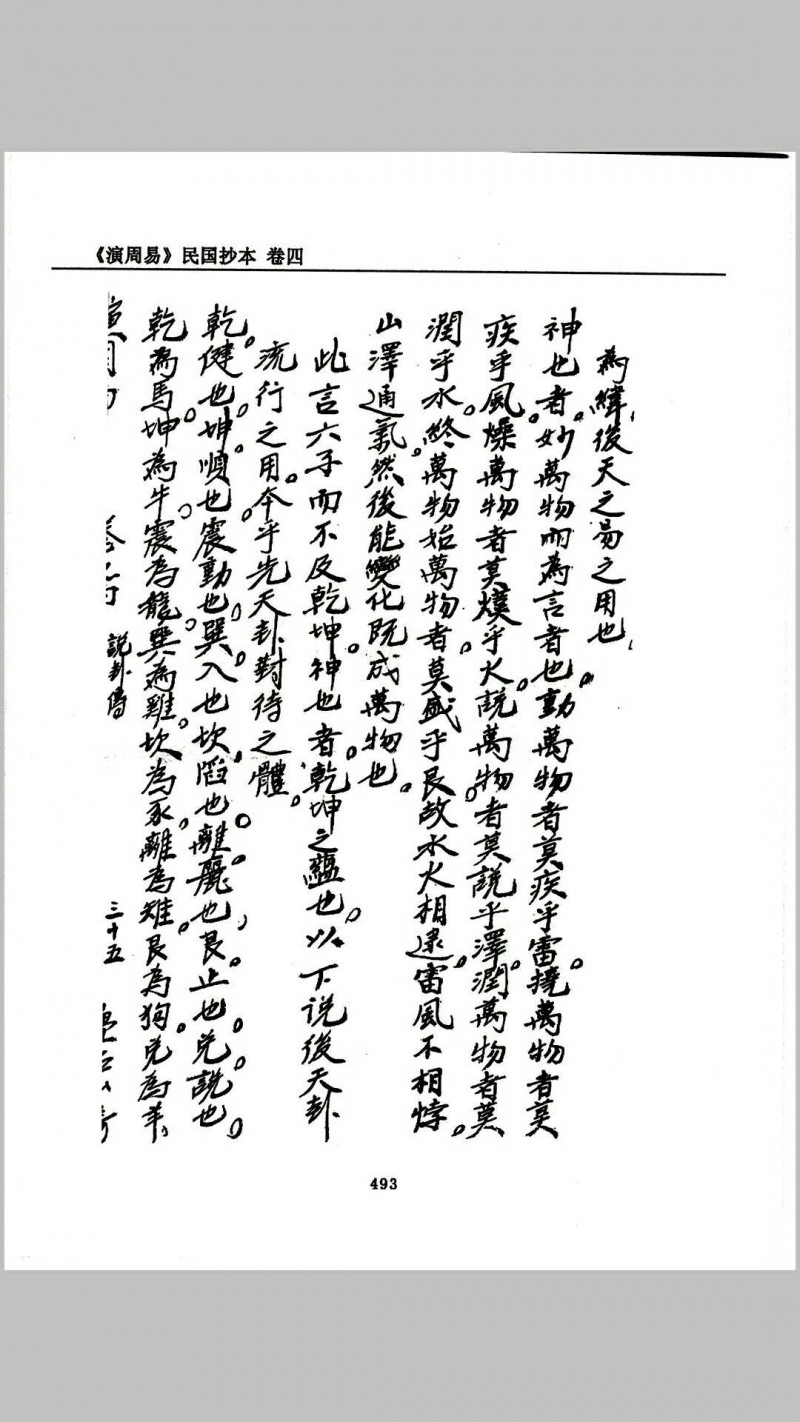 《演周易》民国抄本 卷四
為緯後天之易之用也
神也者。妙萬物而為言者也。動萬物者莫疾乎雷。撓萬物者莫
疾乎風。燥萬物者莫熯乎火。說萬物者莫說乎澤。潤萬物者莫
潤乎水。終萬物始萬物者。莫盛乎艮。故水火相逮。雷風不相悖。
山澤通氣。然後能變化既成萬物也。
此言六子而不及乾坤。神也者。乾坤之蘊也。以下说後天卦
流行之用。本乎先天卦對待之體。
乾。健也。坤。順也。震。動也。巽。入也。坎。陷也。離。麗也。艮。止也。兌。說也。
乾為馬。坤為牛。震為龍。巽為雞。坎為豕。離為雉。艮為狗。兌為羊。
說卦傳
三十五
493